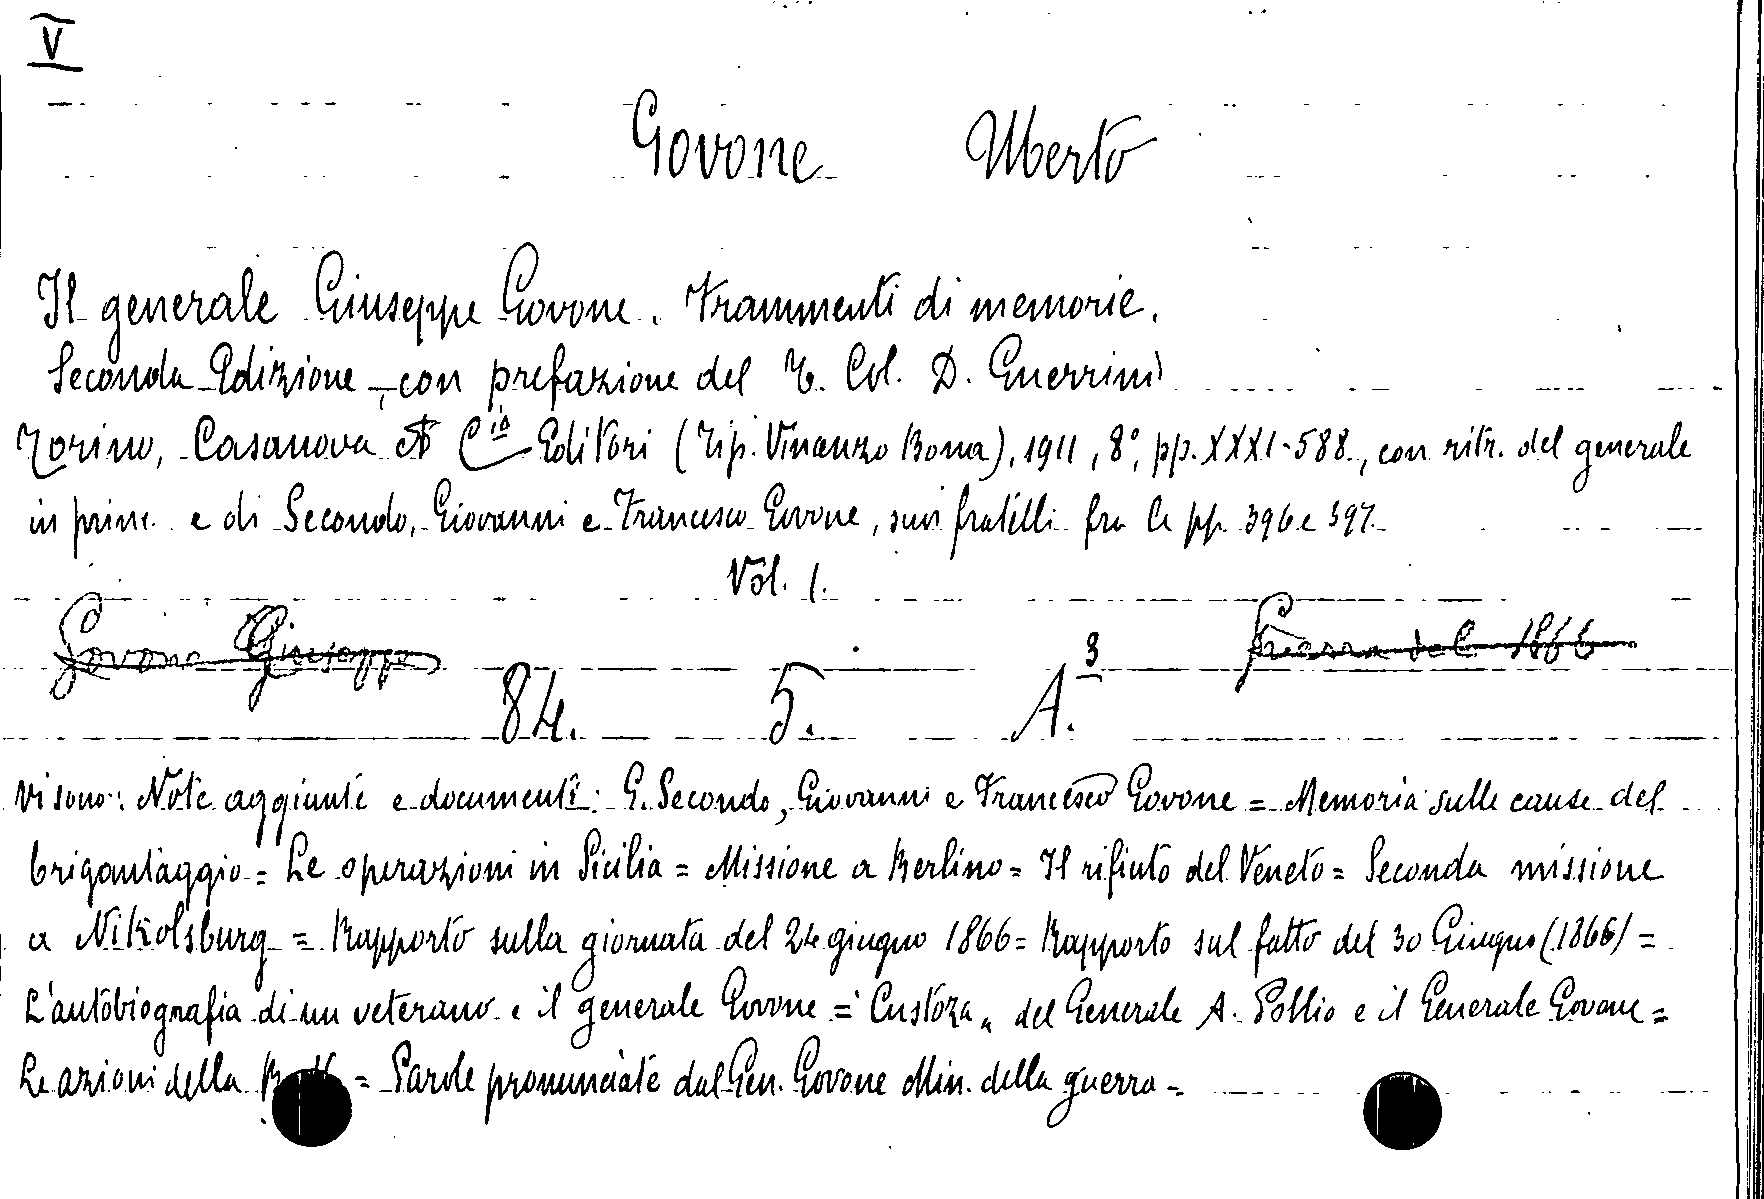 V
Govone Uberto
Il generale Giuseppe Govone. Frammenti di memorie.
Seconda Edizione, con prefazione del T. Col. D. Guerrini
Torino, Casanova et C.ia Editori (Tip. Vincenzo Bona), 1911, 8°, pp. XXXI-588, con ritr. del generale
in princ. e di Secondo, Giovanni e Francesco Govone, suoi fratelli fra le pp. 396 e 397.
Vol. 1.
Govone Giuseppe Guerra del 1866
84. 5. A.3
Vi sono: Note aggiunte e documenti: G. Secondo, Giovanni e Francesco Govone = Memoria sulle cause del
brigantaggio = Le operazioni in Sicilia = Missione a Berlino = Il rifiuto del Veneto = Seconda missione
a Nikolsburg = Rapporto sulla giornata del 24 giugno 1866 = Rapporto sul fatto del 30 Giugno (1866) =
L'autobiografia di un veterano e il generale Govone = "Custoza" del Generale A. Pollio e il Generale Govone =
Le azioni della = Parole pronunciate dal Gen. Govone Min. della guerra =